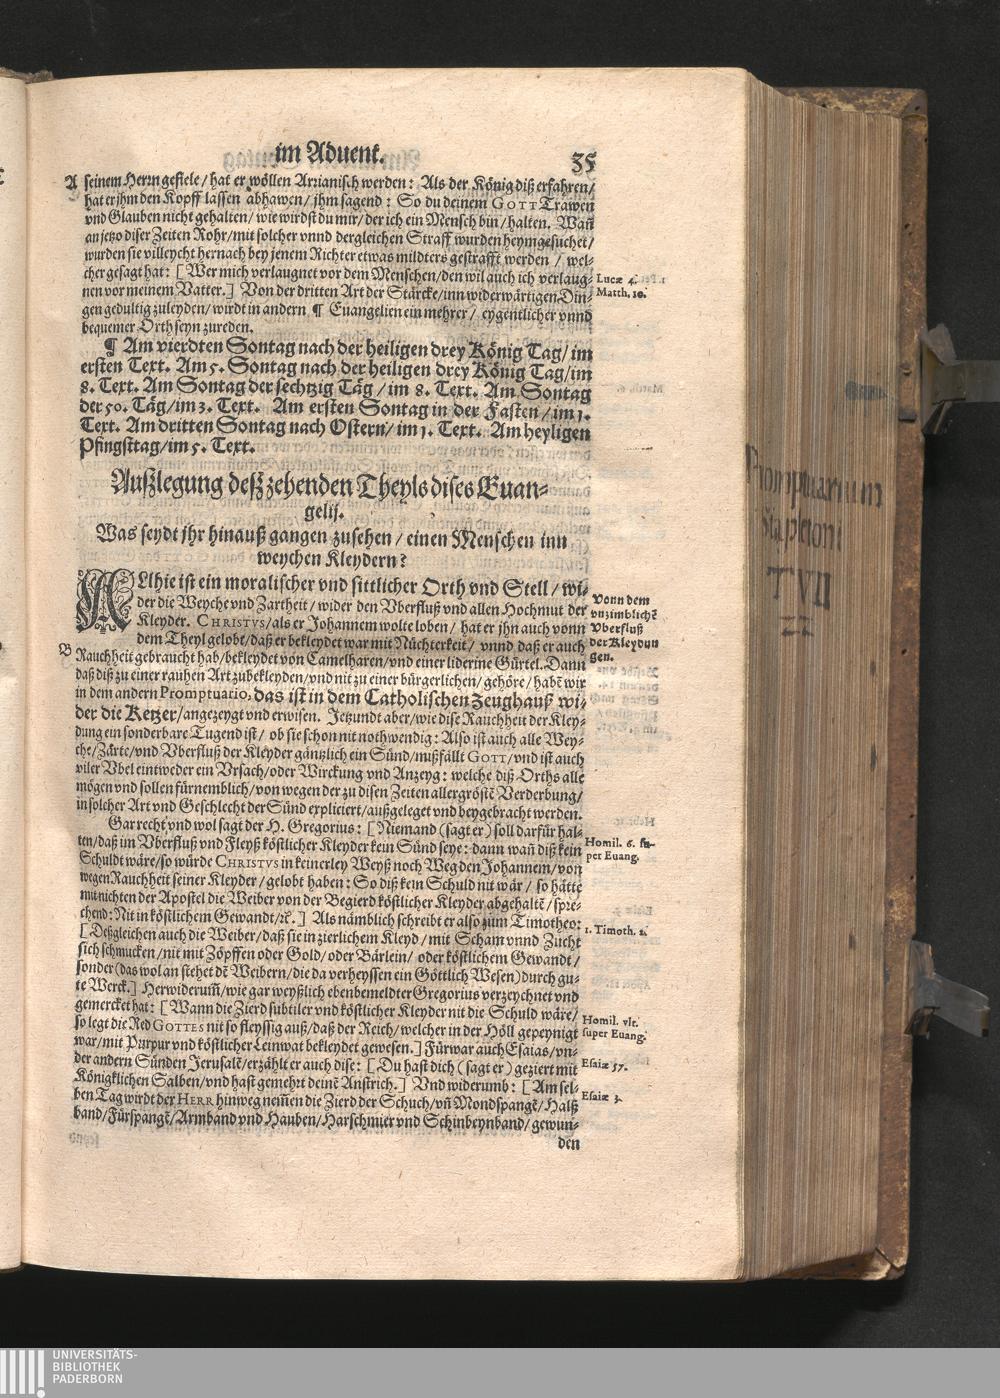 im Aduent.
35
A seinem Herrn gefiele / hat er wöllen Arrianisch werden: Als der König diß erfahren /
hat er jhm den Kopff lassen abhawen / jhm sagend: So du deinem GOTT Trawen
vnd Glauben nicht gehalten / wie wirdst du mir / der ich ein Mensch bin / halten. Wañ
an jetzo diser Zeiten Rohr / mit solcher vnnd dergleichen Straff wurden heymgesuchet /
wurden sie villeycht hernach bey jenem Richter etwas mildters gestrafft werden / wel-
cher gesagt hat: [Wer mich verlaugnet vor dem Menschen / den wil auch ich verlaug-
nen vor meinem Vatter.] Von der dritten Art der Stärcke / inn widerwärtigen Din-
gen gedultig zuleyden / wirdt in andern ¶ Euangelien ein mehrer / eygentlicher vnnd
bequemer Orth seyn zureden.
Lucæ 4.
Matth. 10.
¶ Am vierdten Sontag nach der heiligen drey König Tag / im
ersten Text. Am 5. Sontag nach der heiligen drey König Tag / im
8. Text. Am Sontag der sechtzig Täg / im 8. Text. Am Sontag
der 50. Täg / im 3. Text. Am ersten Sontag in der Fasten / im 1.
Text. Am dritten Sontag nach Ostern / im 1. Text. Am heyligen
Pfingsttag / im 5. Text.
Außlegung deß zehenden Theyls dises Euan-
gelij.
Was seydt jhr hinauß gangen zusehen / einen Menschen inn
weychen Kleydern?
ALlhie ist ein moralischer vnd sittlicher Orth vnd Stell / wi-
der die Weyche vnd Zartheit / wider den Vberfluß vnd allen Hochmut der
Kleyder. CHRISTVS / als er Johannem wolte loben / hat er jhn auch vonn
dem Theyl gelobt / daß er bekleydet war mit Nüchterkeit / vnnd daß er auch
B Rauchheit gebraucht hab / bekleydet von Camelharen / vnd einer liderine Gürtel. Dann
daß diß zu einer rauhen Art zubekleyden / vnd nit zu einer bürgerlichen / gehöre / habẽ wir
in dem andern Promptuario, das ist in dem Catholischen Zeughauß wi-
der die Ketzer / angezeygt vnd erwisen. Jetzundt aber / wie dise Rauchheit der Kley-
dung ein sonderbare Tugend ist / ob sie schon nit nothwendig: Also ist auch alle Wey-
che / Zärte / vnd Vberfluß der Kleyder gäntzlich ein Sünd / mißfällt GOTT / vnd ist auch
viler Vbel eintweder ein Vrsach / oder Wirckung vnd Anzeyg: welche diß Orths alle
mögen vnd sollen fürnemblich / von wegen der zu disen Zeiten allergröstẽ Verderbung /
in solcher Art vnd Geschlecht der Sünd expliciert / außgeleget vnd beygebracht werden.
Vonn dem
vnzimblichẽ
Vberfluß
der Kleydun
gen.
Gar recht vnd wol sagt der H. Gregorius: [Niemand (sagt er) soll darfür hal-
ten / daß im Vberfluß vnd Fleyß köstlicher Kleyder kein Sünd seye: dann wañ diß kein
Schuldt wäre / so würde CHRISTVS in keinerley Weyß noch Weg den Johannem / von
wegen Rauchheit seiner Kleyder / gelobt haben: So diß kein Schuld nit wär / so hätte
mit nichten der Apostel die Weiber von der Begierd köstlicher Kleyder abgehaltẽ / spre-
chend: Nit in köstlichem Gewandt / ꝛc.] Als nämblich schreibt er also zum Timotheo:
[Deßgleichen auch die Weiber / daß sie in zierlichem Kleyd / mit Scham vnnd Zucht
sich schmucken / nit mit Zöpffen oder Gold / oder Bärlein / oder köstlichem Gewandt /
sonder (das wol an stehet dẽ Weibern / die da verheyssen ein Göttlich Wesen) durch gu-
te Werck.] Herwiderum̃ / wie gar weyßlich ebenbemeldter Gregorius verzeychnet vnd
gemercket hat: [Wann die Zierd subtiler vnd köstlicher Kleyder nit die Schuld wäre /
so legt die Red GOTTES nit so fleyssig auß / daß der Reich / welcher in der Höll gepeynigt
war / mit Purpur vnd köstlicher Leinwat bekleydet gewesen.] Fürwar auch Esaias / vn-
der andern Sünden Jerusalẽ / erzählt er auch dise: [Du hast dich (sagt er) geziert mit
Königklichen Salben / vnd hast gemehrt deinẽ Anstrich.] Vnd widerumb: [Am sel-
ben Tag wirdt der HERR hinweg nem̃en die Zierd der Schuch / vñ Mondspangẽ / Halß
band / Fürspangẽ / Armband vnd Hauben / Harschmier vnd Schinbeynband / gewun-
den
Homil. 6. su-
per Euang.
1. Timoth. 2.
Homil. vlt.
super Euang.
Esaiæ 57.
Esaiæ 3.
Promptuarium
Stapletoni
T VII
UNIVERSITÄTS-
BIBLIOTHEK
PADERBORN